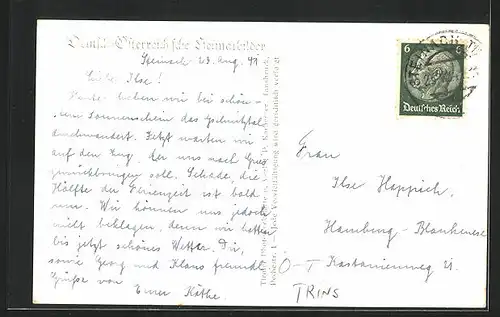 Deutsch-Österreichische Heimatbilder
Steinach 23. Aug. 41
Liebe Ilse!
Heute haben wir bei schön-
stem Sonnenschein das Gschnitztal
durchwandert. Jetzt warten wir
auf den Zug, der uns nach
zurückbringen soll. Schade, die
Hälfte der Ferienzeit ist bald
um. Wir können uns jedoch
nicht beklagen, denn wir hatten
bis jetzt schönes Wetter. Dir,
sowie Georg und Klaus freundl.
Grüße von Eurer Käthe.
6 6
Deutsches Reich
Frau
Ilse Happich
Hamburg-Blankenese
Kastanienweg
Ö-T
TRINS